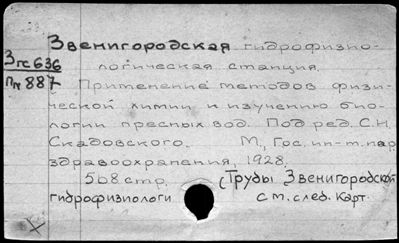 Звенигородская гидрофизио-
Згс636
логическая станция.
Пп887
Применение методов физи-
ческой химии к изучению био-
логии пресных вод. Под ред. С.Н.
Скадовского. М., Гос. ин-т. нар.
здравоохранения, 1928.
568 стр. (Труды Звенигородской
гидрофизиологи
см. след. карт.